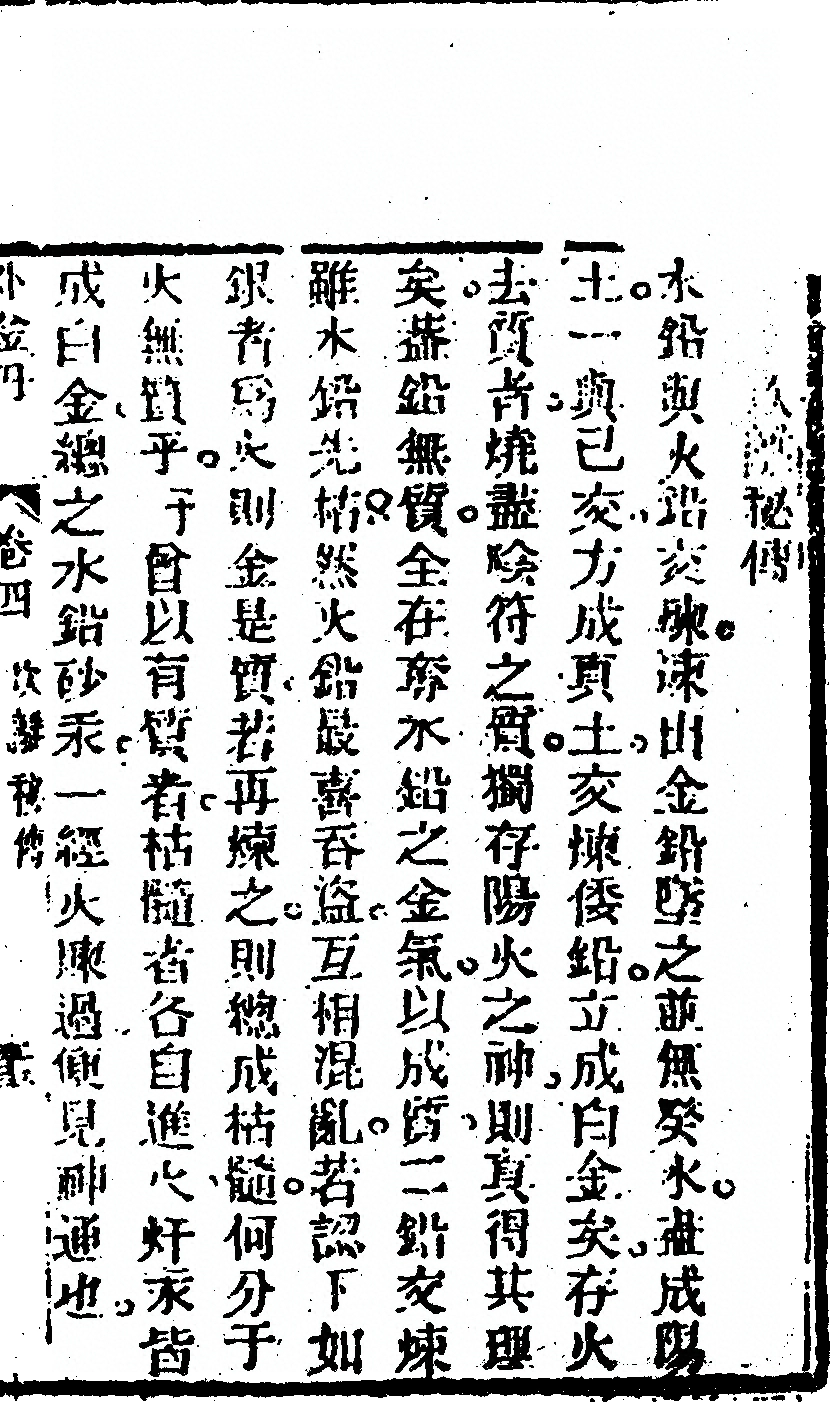 秘傳
水鉛與火鉛交煉煉出金鉛墜之並無癸水盡成陽
土一與己交方成真土交煉倭鉛立成白金矣存火
去質者燒盡陰符之質獨存陽火之神則真得其理
矣蓋鉛無質全在奪水鉛之金氣以成質二鉛交煉
雖水鉛先枯然火鉛最喜吞盜互相混亂若認下如
銀者爲火則金是質若再煉之則總成枯髓何分于
火無質乎予曾以有質者枯髓者各自進火奸汞皆
成白金總之水鉛砂汞一經火煉過便見神通也
卷四
秘傳